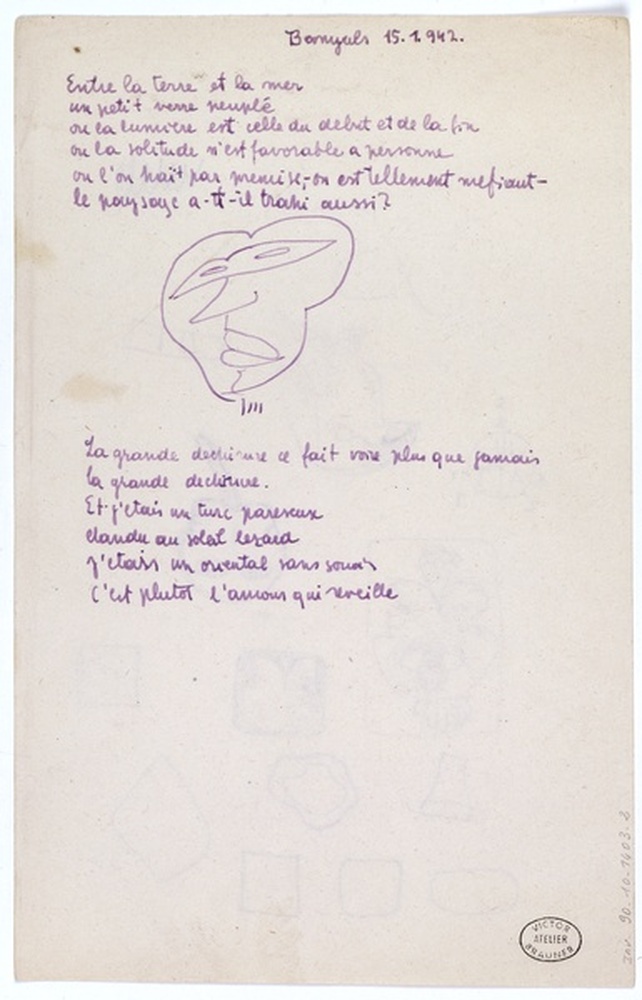 Banyuls 15.1.942.
Entre la terre et la mer
un petit verre peuplé
ou la lumiere est celle du debut et de la fin
ou la solitude n'est favorable a personne
ou l'on hait par - on est tellement mefiant -
le paysage a-t-il trahi aussi?
La grande dechirure ce fait voire plus que jamais
la grande dechirure.
Et j'etais un turc paresseux
etandu au soleil lezard
j'etais un oriental sans soucis
C'est plutot l'amour qui reveille
VICTOR
ATELIER
BRAUNER
Inv. 90-10-1403.2